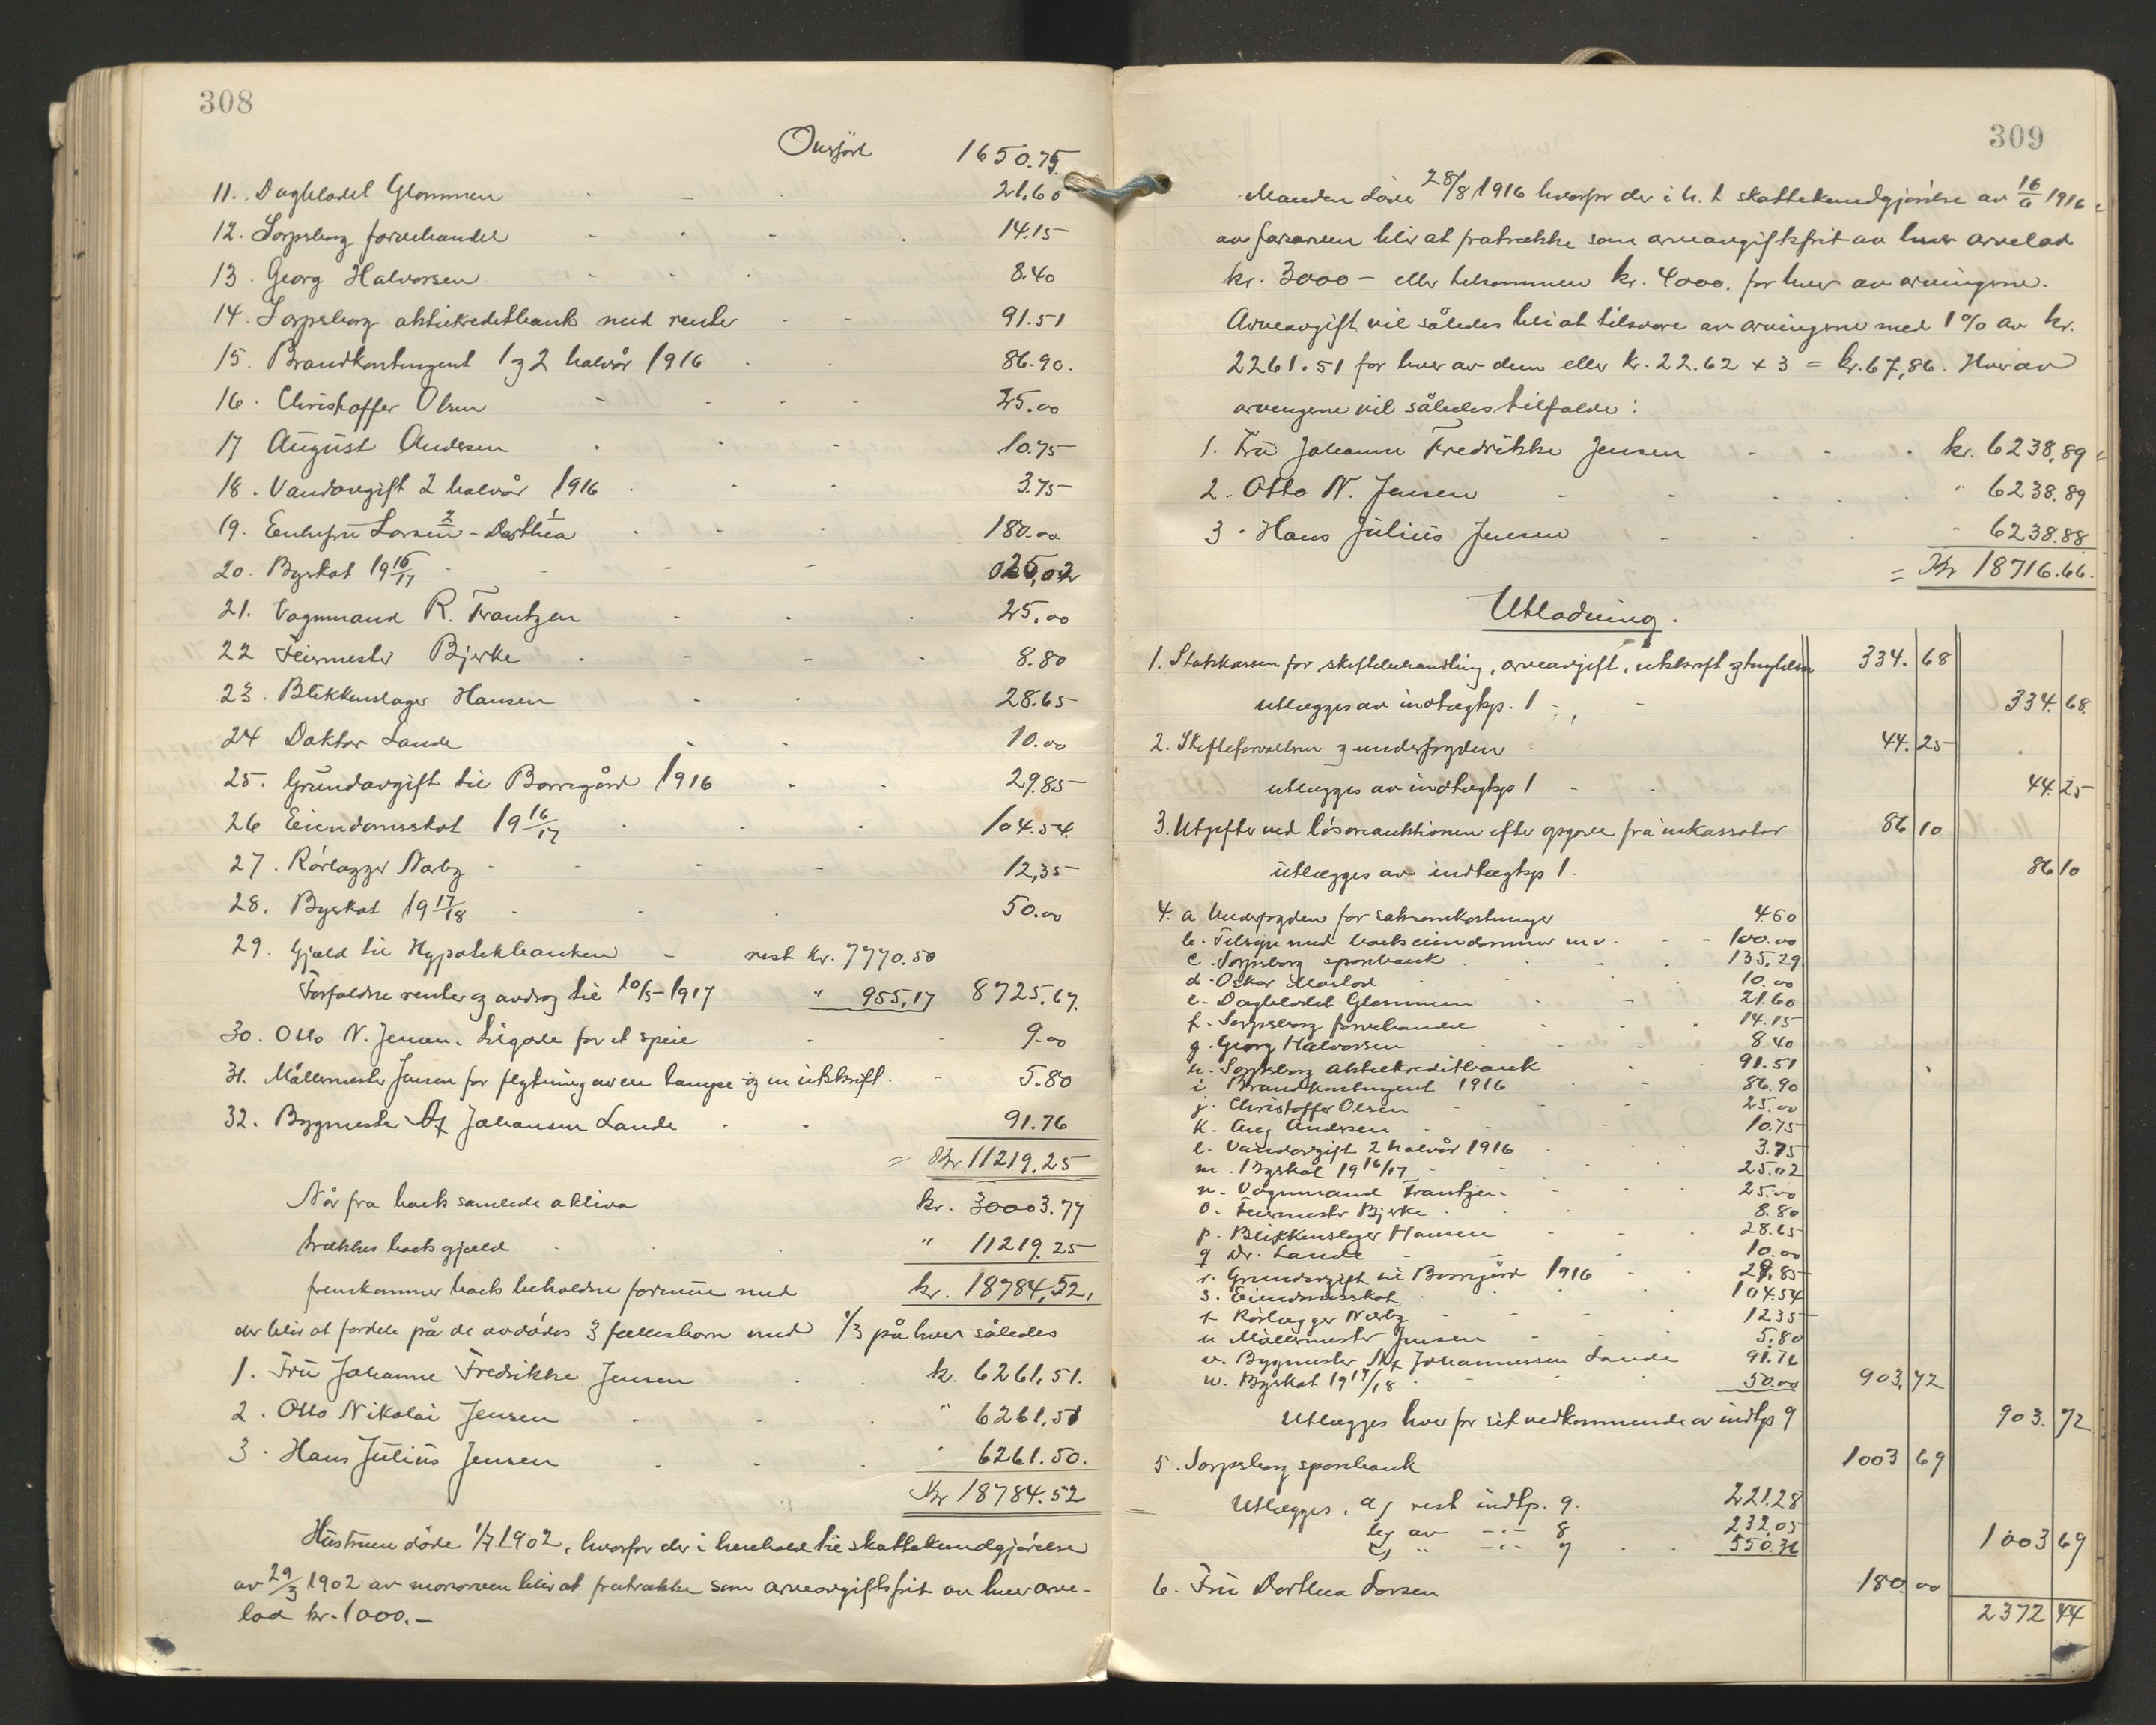 308
Overført 1650.75
11. Dagbladet Glommen 21.60
12. Sarpsborg farvehandel 14.15
13. Georg Halvorsen 8.40
14. Sarpsborg aktiekreditbank med renter 91.51
15. Brandkontingent 1 og 2 halvår 1916 86.90.
16. Christoffer Olsen 25.00
17 August Andersen 10.75
18. Vandavgift 2 halvår 1916 3.75
19. Enkefru Larsen - Dorthea 180.00
20. Byskat 1916/17 25,02
21. Vognmand R. Frantzen 25.00
22 Feiermester Bjerke 8.80
23. Blikkenslager Hansen 28.65
24 Doktor Lande 10.00
25. Grundavgift til Borregård 1916 29.85
26 Eiendomsskat 1916/17 104.54.
27. Rørlægger Nærby 12,35
28. Byskat 1917/18 50.00
29. Gjæld til Hypotekbanken - rest kr. 7770.50
Forfaldne renter og avdrag til 10/5-1917 " 955,17 8725.67.
30. Otto N. Jensen. Tilgode for et speil 9.00
31. Målermester Jensen for flytning av en lampe og en utskrift. 5.80
32. Bygmester Johansen Lande 91.76
= Kr 11219.25
Når fra boets samlede aktiva kr. 30003.77
trækkes boets gjæld " 11219.25
fremkommer boets beholdne formue med kr. 18784,52,
der blir at fordele på de avdødes 3 fællesbarn med 1/3 på hver således
1. Fru Johanne Fredrikke Jensen k. 6261,51.
2. Otto Nikolai Jensen " 6261,51
3. Hans Julius Jensen " 6261.50.
Kr 18784.52
Hustruen døde 1/7 1902, hvorfor der i henhold til skattekundgjørelse
av 29/3 1902 av morarven blir at fratrække som arveavgiftsfrit av hver arve-
lod kr. 1000.-
309
Manden døde 28/8 1916 hvorfor der i h. t. skattekundgjørelse av 16/6 1916
av fararven blir at fratrække som arveavgiftsfrit av hver arvelod
kr. 3000 - eller tilsammen kr. 4000. for hver av arvingerne.
Arveavgift vil således bli at tilsvare av arvingerne med 1% av kr.
2261.51 for hver av dem eller kr. 22.62 x 3 = kr. 67,86. Hver av
arvingene vil således tilfalde:
1. Fru Johanne Fredrikke Jensen kr. 6238,89
2. Otto N. Jensen " 6238.89
3. Hans Julius Jensen " 6238.88
= Kr 18716.66.
Utlodning.
1. Statskassen for skiftebehandling, arveavgift, utskrift og 334.68
utlægges av indtægtsp. 1 334.68.
2. Skifteforvalteren og underfogden 44.25
utlægges av indtægtsp 1 44.25
3. Utgifter ved løsøreauktionen efter opgave fra inkassator 86 10
utlægges av indtægtsp 1. 86 10
4. a Underfogden for saksomkostninger 4.60
b. Tilsyn med boets eiendommer m.v. 100.00
c. Sarpsborg sparebank 135,29
d. Oskar 10.00
e. Dagbladet Glommen 21.60
f. Sarpsborg farvehandel 14.15
g. Georg Halvorsen 8.40
h. Sarpsborg aktiekreditbank 91.51
i Brandkontingent 1916 86.90
j. Christoffer Olsen 25.00
k. Aug Andersen 10.75
l. Vandavgift 2 halvår 1916 3.75
m. Byskat 1916/17 25.02
n. Vognmand Frantzen 25.00
o. Feiermester Bjerke 8.80
p. Blikkenslager Hansen 28.65
q Dr. Lande 10.00
r. Grundavgift til Borregård 1916 29.85
s. Eiendomsskat 104.54
t Rørlægger Nærby 12.35
u Målermester Jensen 5.80
v. Bygmester Johannessen Lande 91.76
w. Byskat 1917/18 50.00 903,72
Utlægges hver for sit vedkommende av indtp 9 903.72
5. Sarpsborg sparebank 1003 69
Utlægges, a/ rest indtp. 9. 221.28
b/ av -"- 8 232,05
c/ " -"- 7 550.36 1003 69
6. Fru Dorthea Larsen 180.00
2372 44